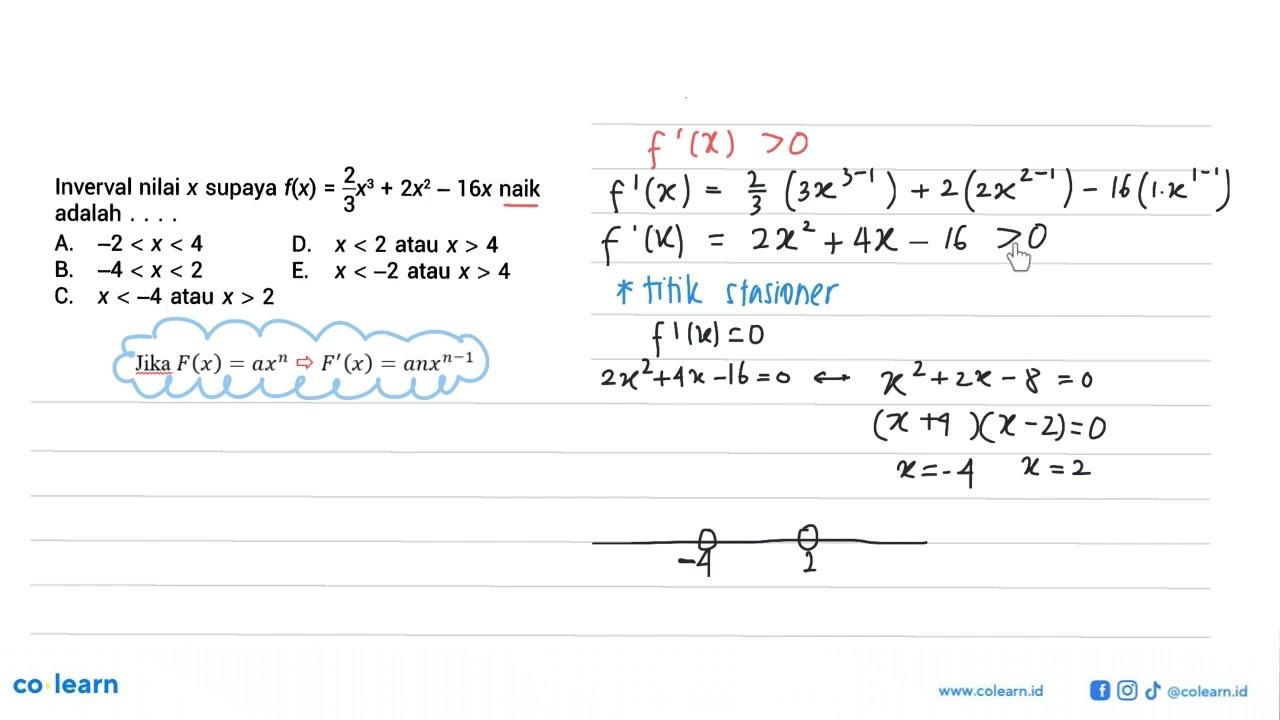 Inverval nilai x supaya f(x) = 2/3x³ + 2x² – 16x naik
adalah . . . .
A. –2 < x < 4
B. –4 < x < 2
C. x < –4 atau x > 2
D. x < 2 atau x > 4
E. x < –2 atau x > 4
Jika F(x) = axⁿ ⇨ F′(x) = anxⁿ⁻¹
f'(x) > 0
f'(x) = 2/3 (3x³⁻¹) + 2(2x²⁻¹) – 16(1.x¹⁻¹)
f'(x) = 2x² + 4x – 16 > 0
* titik stasioner
f'(x) = 0
2x² + 4x – 16 = 0 ↔ x² + 2x – 8 = 0
(x + 4)(x – 2) = 0
x = –4 x = 2
–4 2
co learn
www.colearn.id
@colearn.id